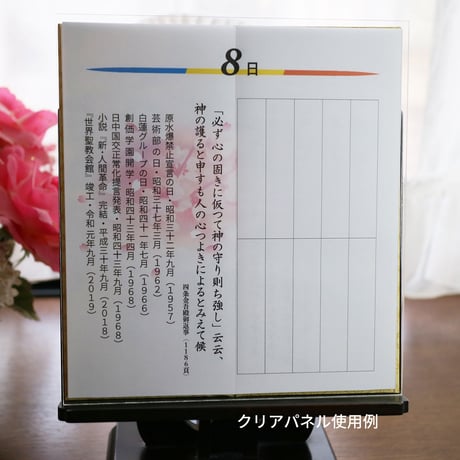 8日
「必ず心の固きに仮つて神の守り則ち強し」云云、
神の護ると申すも人の心つよきによるとみえて候
四条金吾殿御返事(1186頁)
原水爆禁止宣言の日・昭和三十二年九月(1957)
芸術部の日・昭和三十七年三月(1962)
白蓮グループの日・昭和四十一年七月(1966)
創価学園開学・昭和四十三年四月(1968)
日中国交正常化提言発表・昭和四十三年九月(1968)
小説『新・人間革命』完結・平成三十年九月(2018)
『世界聖教会館』竣工・令和元年九月(2019)
クリアパネル使用例